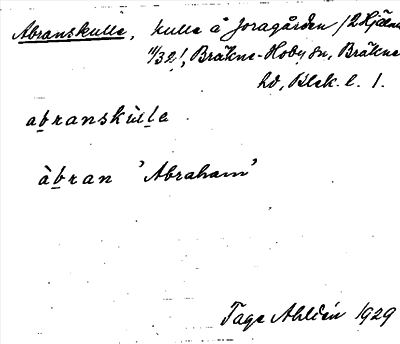 Abranskulle, kulle å Joragården /2 Hjälm
11/32!, Bräkne-Hoby sn, Bräkne
hd, Blek. l. 1.
abranskùlle
àbran 'Abraham'
Tage Ahldén 1929